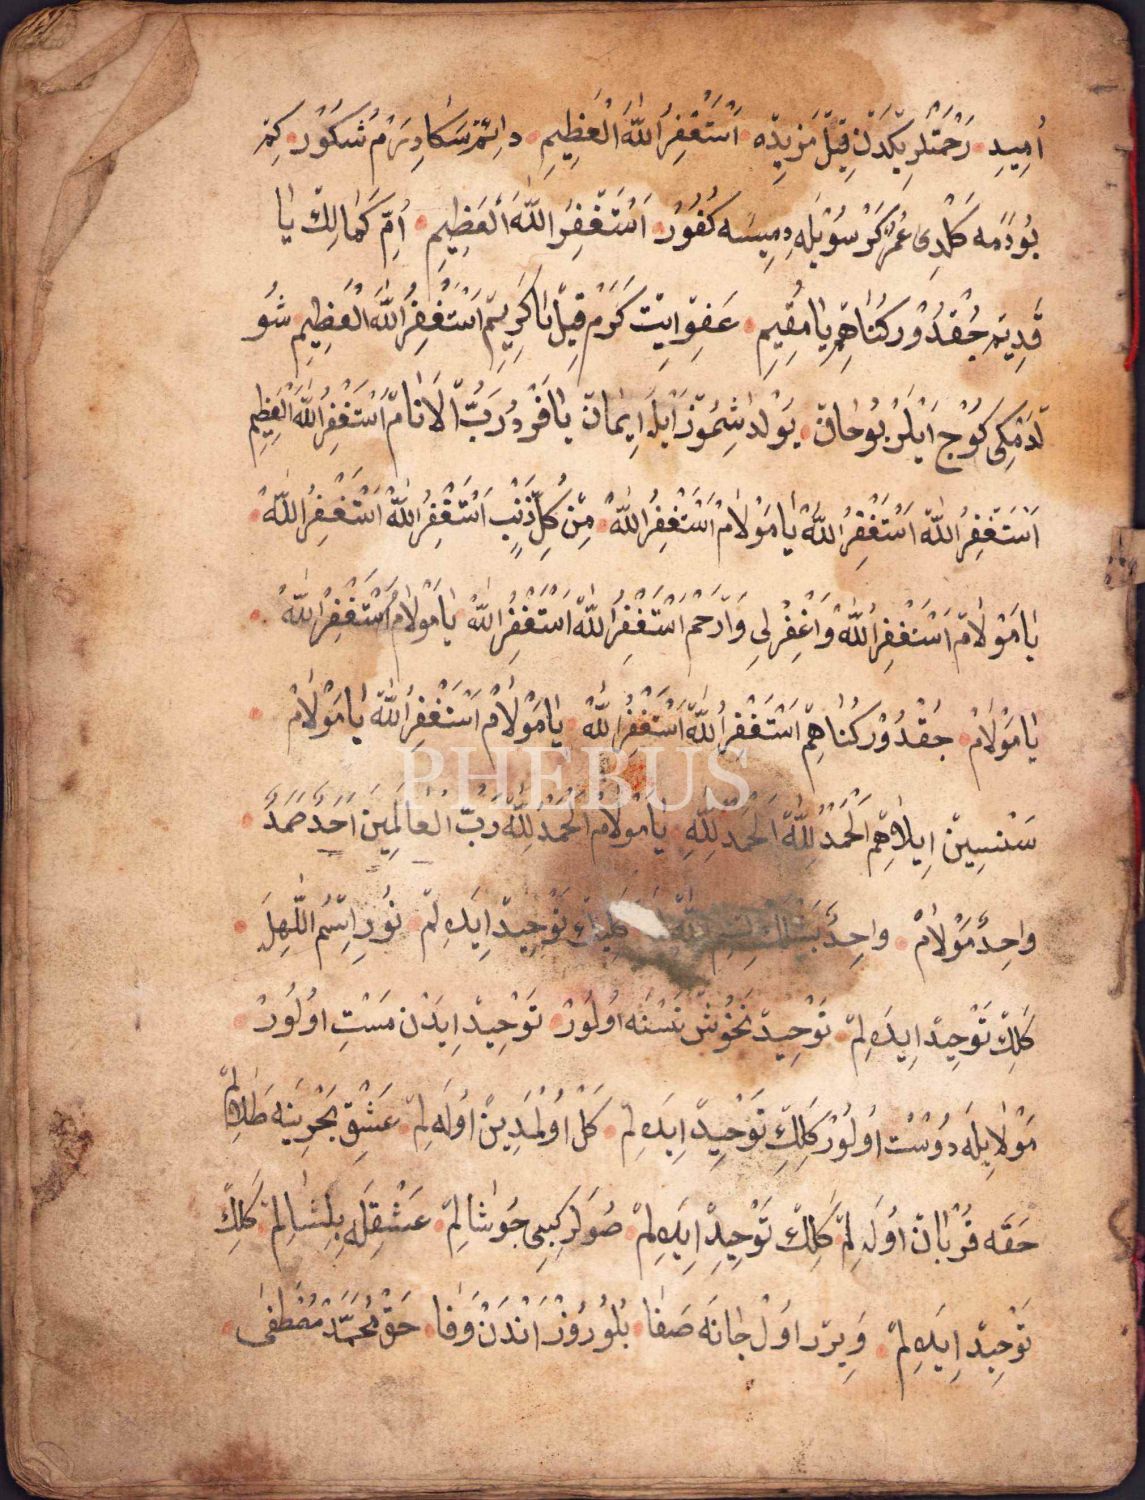 اُمِيدِ رَحْمَتْلَرِيكْدَنْ قِيلْ مَزِيدَه اَسْتَغْفِرُ اللّٰهَ الْعَظِيمِ دَائِمْ سَكَا دِيرَمْ شَكُورْ كِمْ
بُودَمَه كَلْدِى عُمْرُ كَرْ سُوْيْلَه دِمِيسَه كَفُورْ اَسْتَغْفِرُ اللّٰهَ الْعَظِيمِ اُمِّ كَمَالِكْ يَا
قَدِيمْ چُقْدُوْرْ كُنَاهِمْ يَا مُقِيمِ عَفِوْ اِيتْ كَرَمْ قِيلْ يَا كَرِيمْ اَسْتَغْفِرُ اللّٰهَ الْعَظِيمِ شُو
لَدَمْكِى كُوْچ اَيْلَرْ بُو جَانْ يَوْلْدَاشِمُوزْ اَيْلَه اِيمَانْ يَا رَبُّ الْاَنَامْ اَسْتَغْفِرُ اللّٰهَ الْعَظِيمِ
اَسْتَغْفِرُ اللّٰهْ اَسْتَغْفِرُ اللّٰهْ يَا مَوْلَامْ اَسْتَغْفِرُ اللّٰهْ مِنْ كُلِّ ذَنْبٍ اَسْتَغْفِرُ اللّٰهْ اَسْتَغْفِرُ اللّٰهْ
يَا مَوْلَامْ اَسْتَغْفِرُ اللّٰهْ وَاغْفِرْ لِى وَارْحَمْ اَسْتَغْفِرُ اللّٰهْ اَسْتَغْفِرُ اللّٰهْ يَا مَوْلَامْ اَسْتَغْفِرُ اللّٰهْ
يَا مَوْلَامْ چُقْدُوْرْ كُنَاهِمْ اَسْتَغْفِرُ اللّٰهْ اَسْتَغْفِرُ اللّٰهْ يَا مَوْلَامْ اَسْتَغْفِرُ اللّٰهْ يَا مَوْلَامْ
PHEBUS
سَنْسِينْ اِيلَاهِمْ اَلْحَمْدُ لِلّٰهْ اَلْحَمْدُ لِلّٰهِ يَا مَوْلَامْ اَلْحَمْدُ لِلّٰهْ رَبُّ الْعَالَمِينَ اَحَدَ صَمَدَ
وَاحِدَ مَوْلَامْ وَاحِدَ تَوْحِيدْ اِيدَه لِمْ نُورِ اِسْمُ اللّٰهِلَه
كَلِكْ تَوْحِيدْ اِيدَه لِمْ تَوْحِيدْ نَخُوشْ نَسْنَه اُولُورْ تَوْحِيدْ اِيدَنْ مَسْتِ اُولُورْ
مَوْلَا يِلَه دُوسْتْ اُولُورْ كَلِكِ تَوْحِيدْ اِيدَه لِمْ كَلْ اُولْمَدِينْ اُولَه لِمْ عَشْقِ بَحْرِينَه طَلَالِمْ
حَقَه قُرْبَانْ اُولَه لِمْ كَلِكْ تَوْحِيدْ اِيدَه لِمْ صُولَرْ كِبِى جُوشَالِمْ عَشْقِلَه بِلِشَالِمْ كَلِكْ
تَوْحِيدْ اِيدَه لِمْ وِيرْرْ اَوْلْ جَانَه صَفَا بُلُورُوزْ اَنْدَنْ وَفَا حَقْ مُحَمَّدْ مُصْطَفٰى